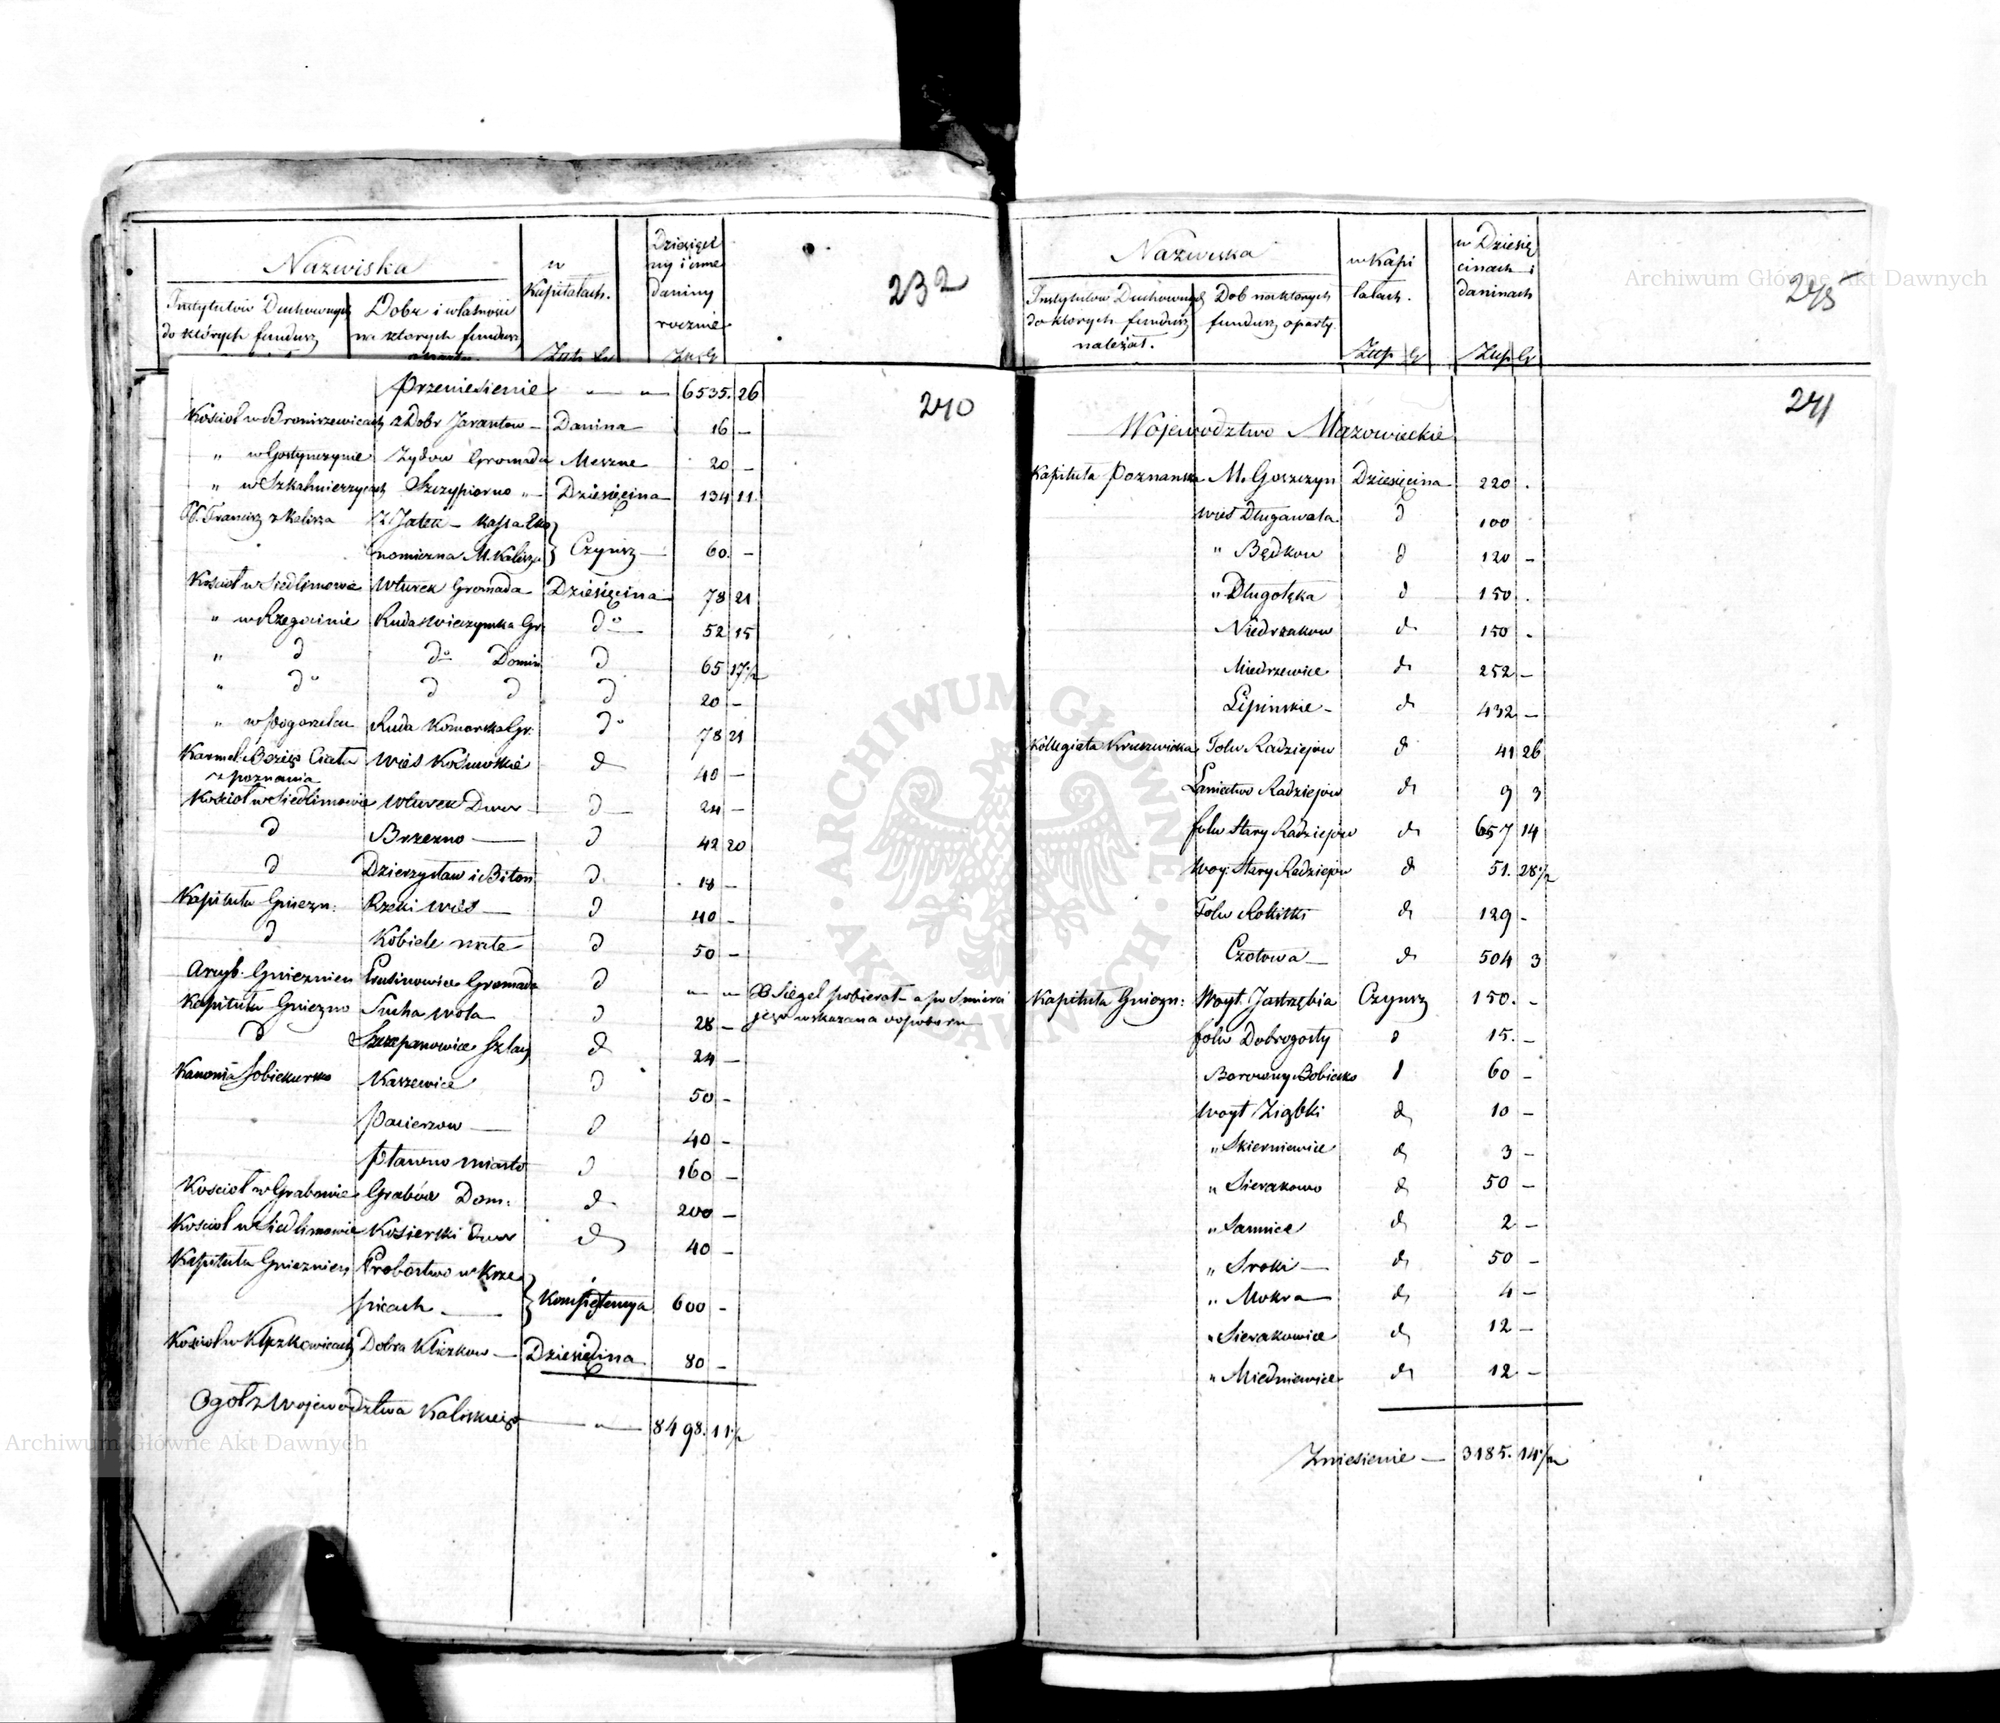 Nazwiska
Instytutów Duchownych
do których fundusz
Dobr i własności
na których fundusz
w
Kapitałach.
Dziesięci
ny i inne
daniny
rocznie
232
240
Przeniesienie " " 6535. 26
Kościoł w Broniszewicach z Dobr Jarantow — Danina 16 —
" w Gostynczynie Żydow Gromada Meszne 20 —
" w Szkalmierzycach Szczypiorno " Dziesięcina 134 11.
Z Jatek — Kassa Eko
nomiczna M. Kalisza Czynsz 60. —
Kościoł w Siedlimowie Wturek Gromada Dziesięcina 78 21
" w Rzegocinie Ruda Wieczynska Gr. do 52 15
" d do Domin d 65 17½
" do d d d 20 —
" w Pogorzelcu Ruda Komorska Gr. do 78 21
Karmel: Bożego Ciała
z Poznania
Wieś d 40 —
Kościoł w Siedlimowie Wturek Dwor d 24 —
d Brzezno d 42 20
d Dzierzysław i Biton d 18 —
Kapituła Gniezn: Rzeki Wieś d 40 —
d Kobiele małe d 50 —
Arcyb. Gnieznien Gromada d " " X Siegel pobierał a po śmierci
jego wskazana do poboru
Kapituła Gniezno Sucha Wola d 28 —
d Szczepanowice Szlach d 24 —
Kanonia Sobiekursko Kaszewice d 50 —
Pacierzow d 40 —
Pławno miasto d 160 —
Kościoł w Grabowie Grabów Dom: d 200 —
Kościoł w Siedlimowie Kosierski Dwor d 40 —
Kapituła Gnieznien Probostwo w Krze
picach Kompetencya 600 —
Kościoł w Klyzkowicach Dobra Kliczkow — Dziesięcina 80 —
Ogół z Województwa Kaliskiego " 8498. 11½
Nazwiska
Instytutów Duchownych
do ktorych fundusz
należał.
Dob na ktorych
fundusz oparty.
w Kapi
tałach.
Złłp g
w Dziesię
cinach i
daninach
Złłp G
241
Województwo Mazowieckie
Kapituła Poznanska M. Goszczyn Dziesięcina 220 .
Wieś Długawola d 100
" Będkow d 120 —
" Długołęka d 150 .
Niedrzakow d 150 .
Miedrzewice d 252 —
Lipinskie — d 432 —
Kollegiata Kruszwicka Folw Radziejow d 41 26
Łanictwo Radziejow d 9 3
folw Stary Radziejow d 657 14
Woy: Stary Radziejow d 51. 28½
Folw Rokitki d 129 —
Czołowa — d 504 3
Kapituła Gniezn: Woyt. Jastrzębia Czynsz 150. —
folw Dobrogosty d 15. —
Borowny Bobiecko d 60 —
Woyt Ziąbki d 10 —
" Skierniewice d 3 —
" Sierakowo d 50 —
" Samice d 2 —
" Sroki — d 50 —
" Mokra d 4 —
" Sierakowice d 12 —
" Miedniewice d 12 —
Zniesienie — 3185. 14½
Archiwum Główne Akt Dawnych
Archiwum Główne Akt Dawnych
ARCHIWUM GŁÓWNE AKT DAWNYCH